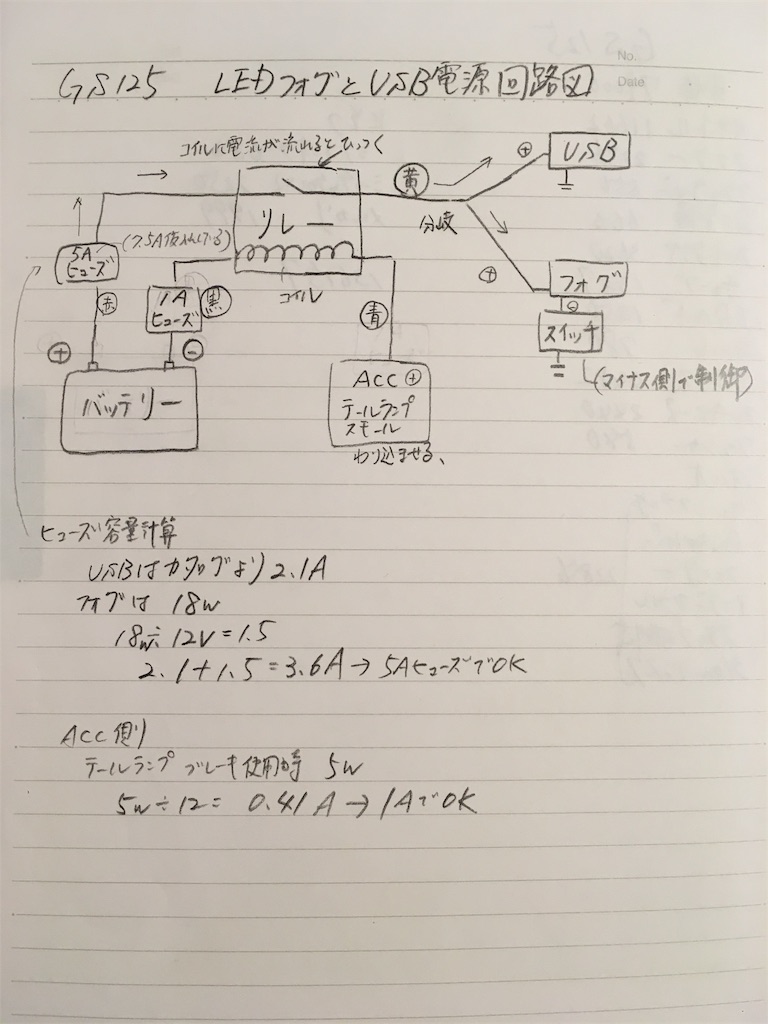 No.
Date
GS125 LEDフォグとUSB電源回路図
コイルに電流が流れるとひっつく
黄
⊕
USB
リレー
分岐
5A
ヒューズ
(7.5A使われている)
赤
1A
ヒューズ
黒
コイル
青
⊕
フォグ
⊖
スイッチ
(マイナス側で制御)
⊕
⊖
バッテリー
ACC⊕
テールランプ
スモール
わり込ませる、
ヒューズ容量計算
USBはカタログより2.1A
フォグは 18w
18w÷12V=1.5
2.1+1.5=3.6A→5AヒューズでOK
ACC側
テールランプ ブレーキ使用時 5w
5w÷12= 0.41A→1AでOK